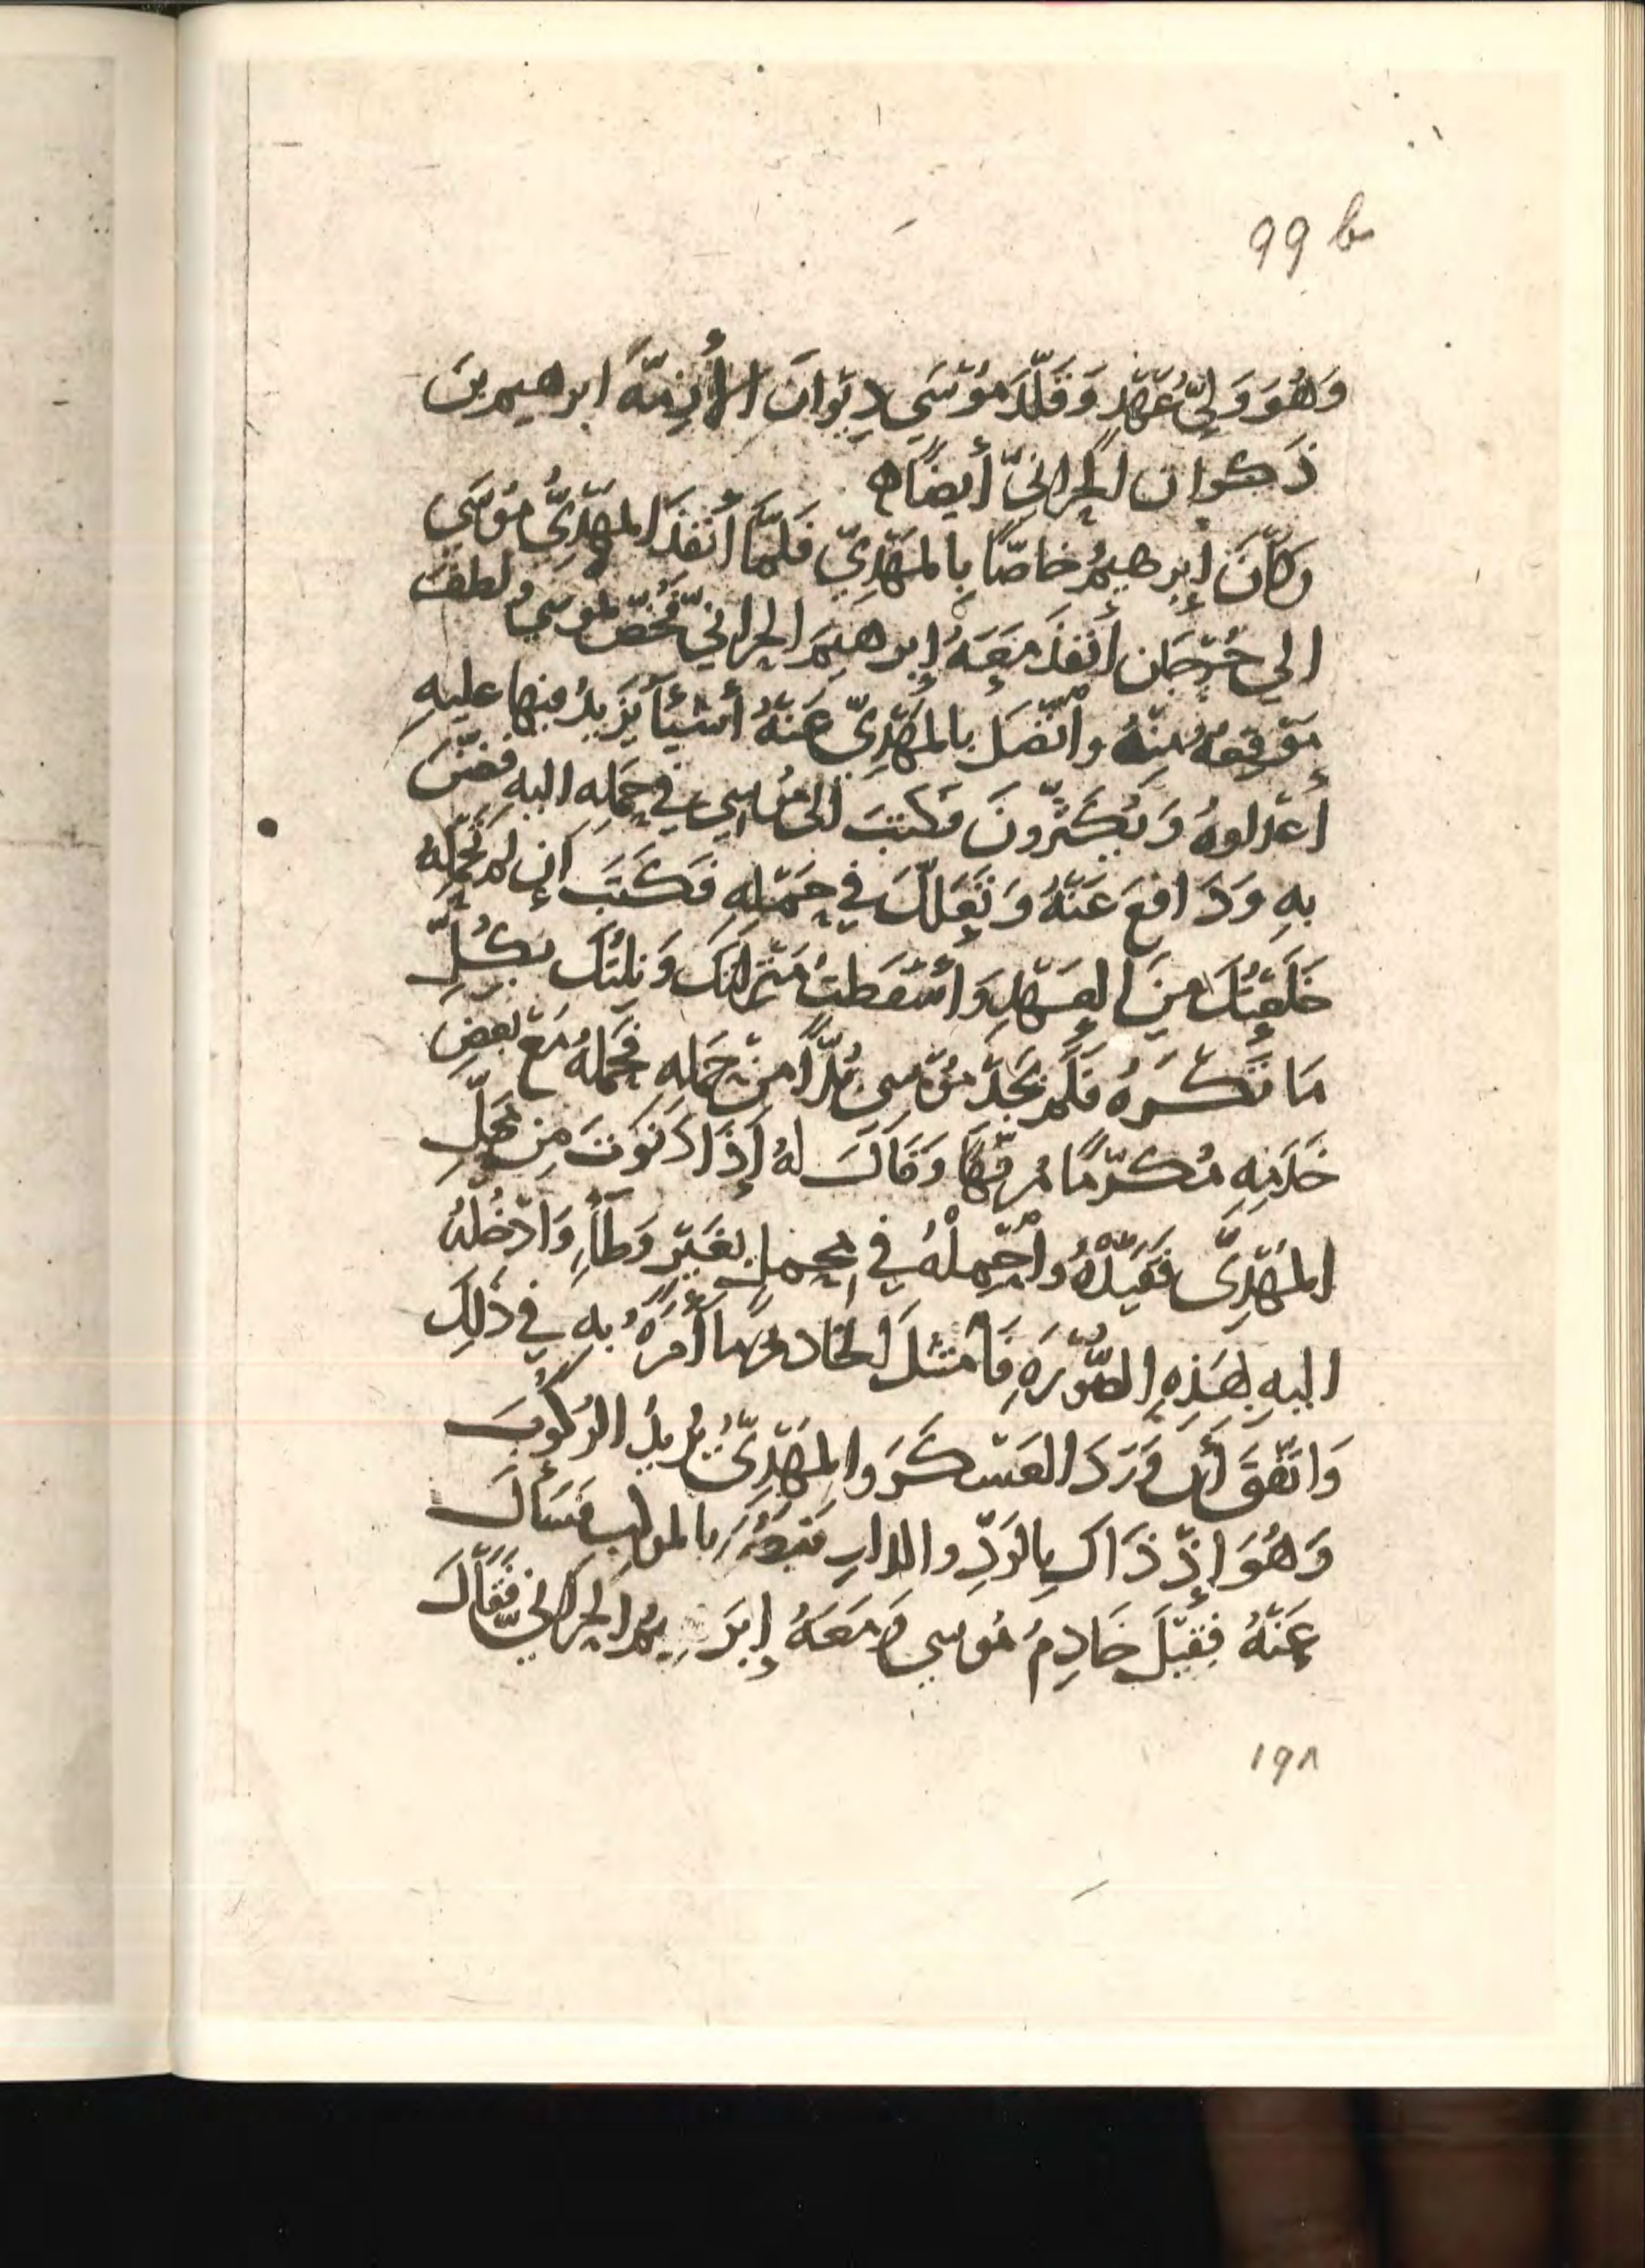 99 b
وَهُوَ وَلِيُّ عَهْدٍ وَقَلَّدَ مُوْسَي دِيْوَانَ الأَزِمَّةِ ابرهيم بنَ
ذَكوان الحرانيّ أيضًاه
وَكَانَ إِبرهيمُ خاصًّا بِالمَهْدِيّ فَلَمَّا أَنفَذَ المَهْدِيُّ مُوْسَى
الي جُرْجَان أَنفَذَ مَعَهُ إِبرهيمَ الحرانيّ فَخُصَّ بموسي ولطف
مَوْقِعُهُ مِنْهُ واتّصَلَ بالمَهْدِيّ عَنْهُ أَشْيَأ يَزيدُ فيها عليهِ
أَعْدَاوهُ وَيُكَثِّرُونَ فَكَتبَ الى مُوسي في حَمْلِه اليه فضنّ
بهِ وَدَافعَ عَنْهُ وَتَعَلَّلَ في حَمْلِهِ فَكَتَبَ إن لم تحملهُ
خَلَعْتُكَ مِنَ العَهْدِ وَأَسْقَطتُ مَنْزِلتَكَ وَنِلْتُكَ بكُلِّ
مَا تَكْرَهُ فَلَم يَجدْ مُوْسى بُدًّا مِنْ حَملِهِ فحَملهُ مَعَ بَعضِ
خَدَمِهِ مُكرّمًا مُرفّهًا وَقَالَ لهُ إِذَا دَنَوْتَ مِن مَحلِّ
المَهْدِيّ فَقَيِّدْهُ واحْمِلْهُ في محمل بغَيْرِ وَطَأٍ وَادْخِلْهُ
اليهِ بِهَذِهِ الصُّوْرَةِ فَامتثلَ الخادمُ مَا أَمَرَهُ بهِ في ذَلِكَ
وَاتّفَقَ أَن وَرَدَ العَسْكَرَ والمَهْدِيّ يُرِيدُ الرُكُوبَ
وَهُوَ إِذْ ذَاكَ بِالرَّذِّ والدارِ بالموكب فسَأَلَ
عَنْهُ فقيْلَ خَادِمُ مُوسي وَمَعَهُ إِبرهيمُ الحرّاني فَقَالَ
١٩٨